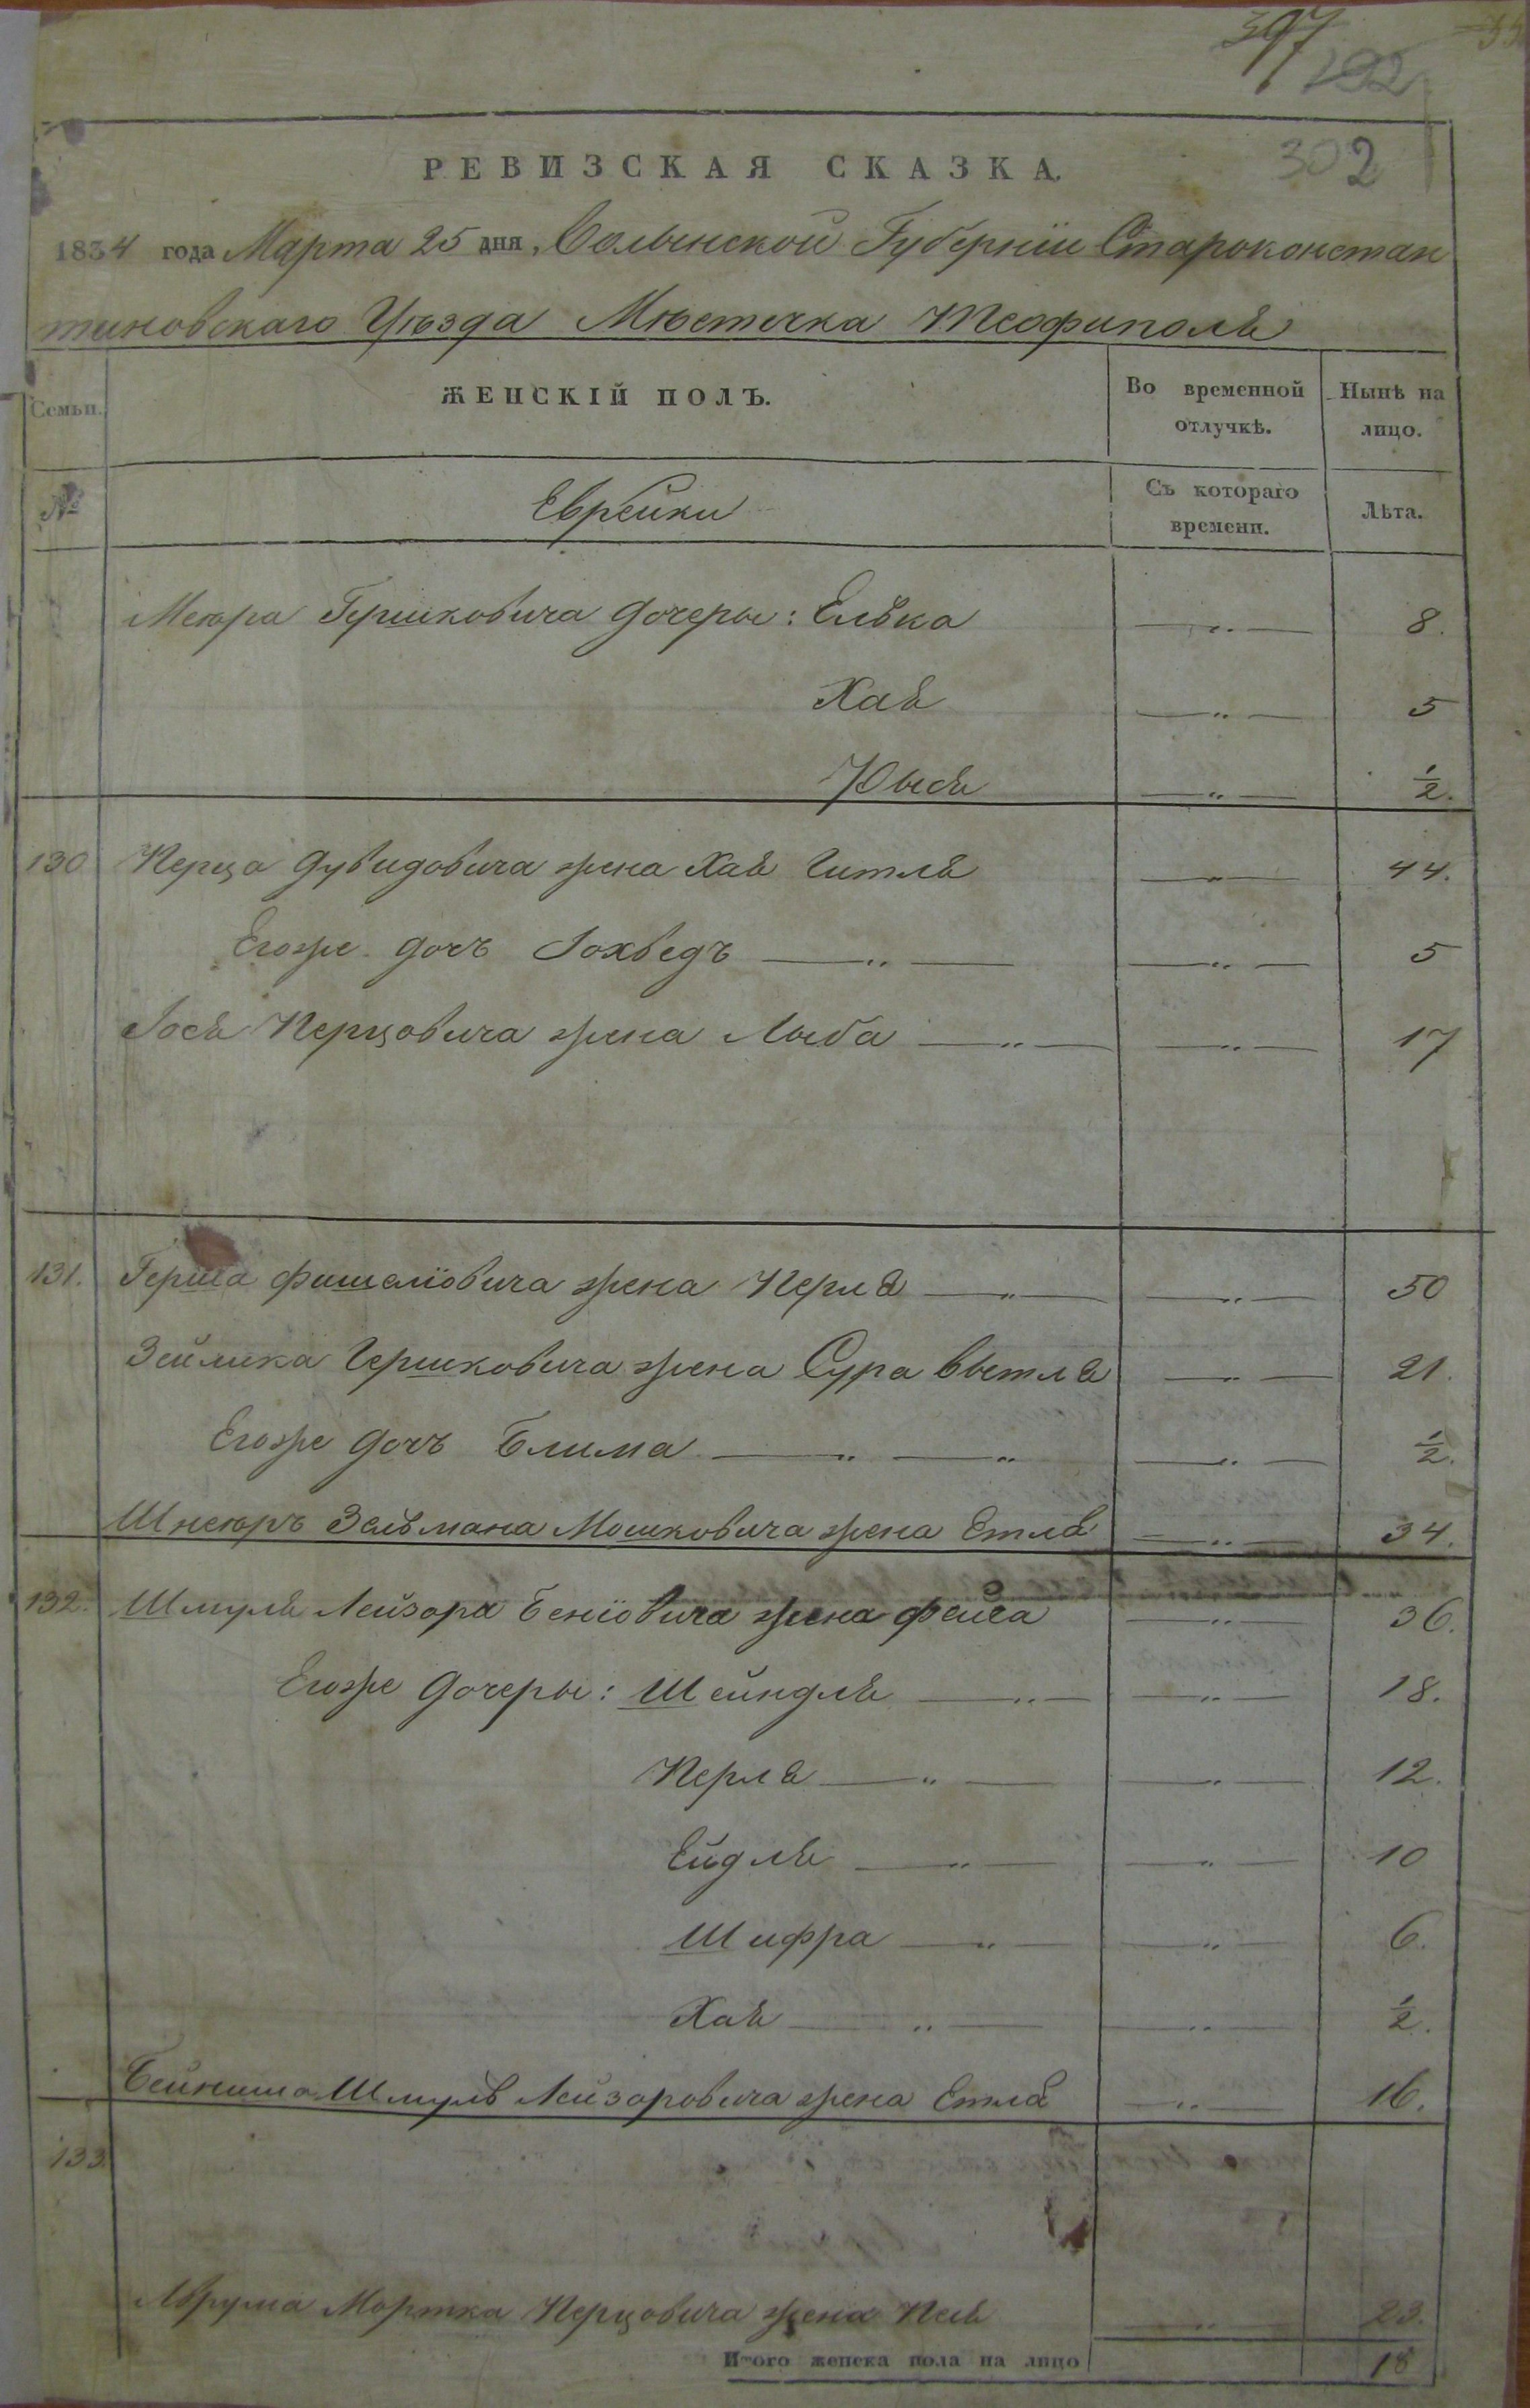 397
192
302
РЕВИЗСКАЯ СКАЗКА.
1834 года Марта 25 дня, Волынской Губерніи Староконстан
тиновскаго Уѣзда Мѣстечка Теофиполя
Семьи.
ЖЕНСКІЙ ПОЛЪ.
Во временной отлучкѣ.
Нынѣ на лицо.
№
Еврейки
Съ котораго времени.
Лѣта.
Меюра Гершковича дочеры: Елька — „ — 8.
Хая — „ — 5
Рыся — „ — ½.
130 Перца Дувидовича жена Хая Гитля — „ — 44.
Егоже дочъ Іохведъ — „ — — „ — 5
Іося Перцовича жена Лыба — „ — — „ — 17
131. Герша Фишелiовича жена Перля — „ — — „ — 50
Зейлика Гершковича жена Сура Вытля — „ — 21.
Егоже дочъ Блима — „ — „ — „ — ½.
Шнеюръ Зельмана Мошковича жена Етля — „ — 34.
132. Шмуля Лейзора Бенiовича жена Фейга — „ — 36.
Егоже дочеры: Шейндля — „ — — „ — 18.
Перля — „ — — „ — 12.
Ейдля — „ — — „ — 10
Шифра — „ — — „ — 6.
Хая — „ — — „ — ½.
Бейниша Шмуль Лейзоровича жена Етля — „ — 16.
133.
Аврума Мортка Перцовича жена Пея — „ — 23.
Итого женска пола на лицо 18